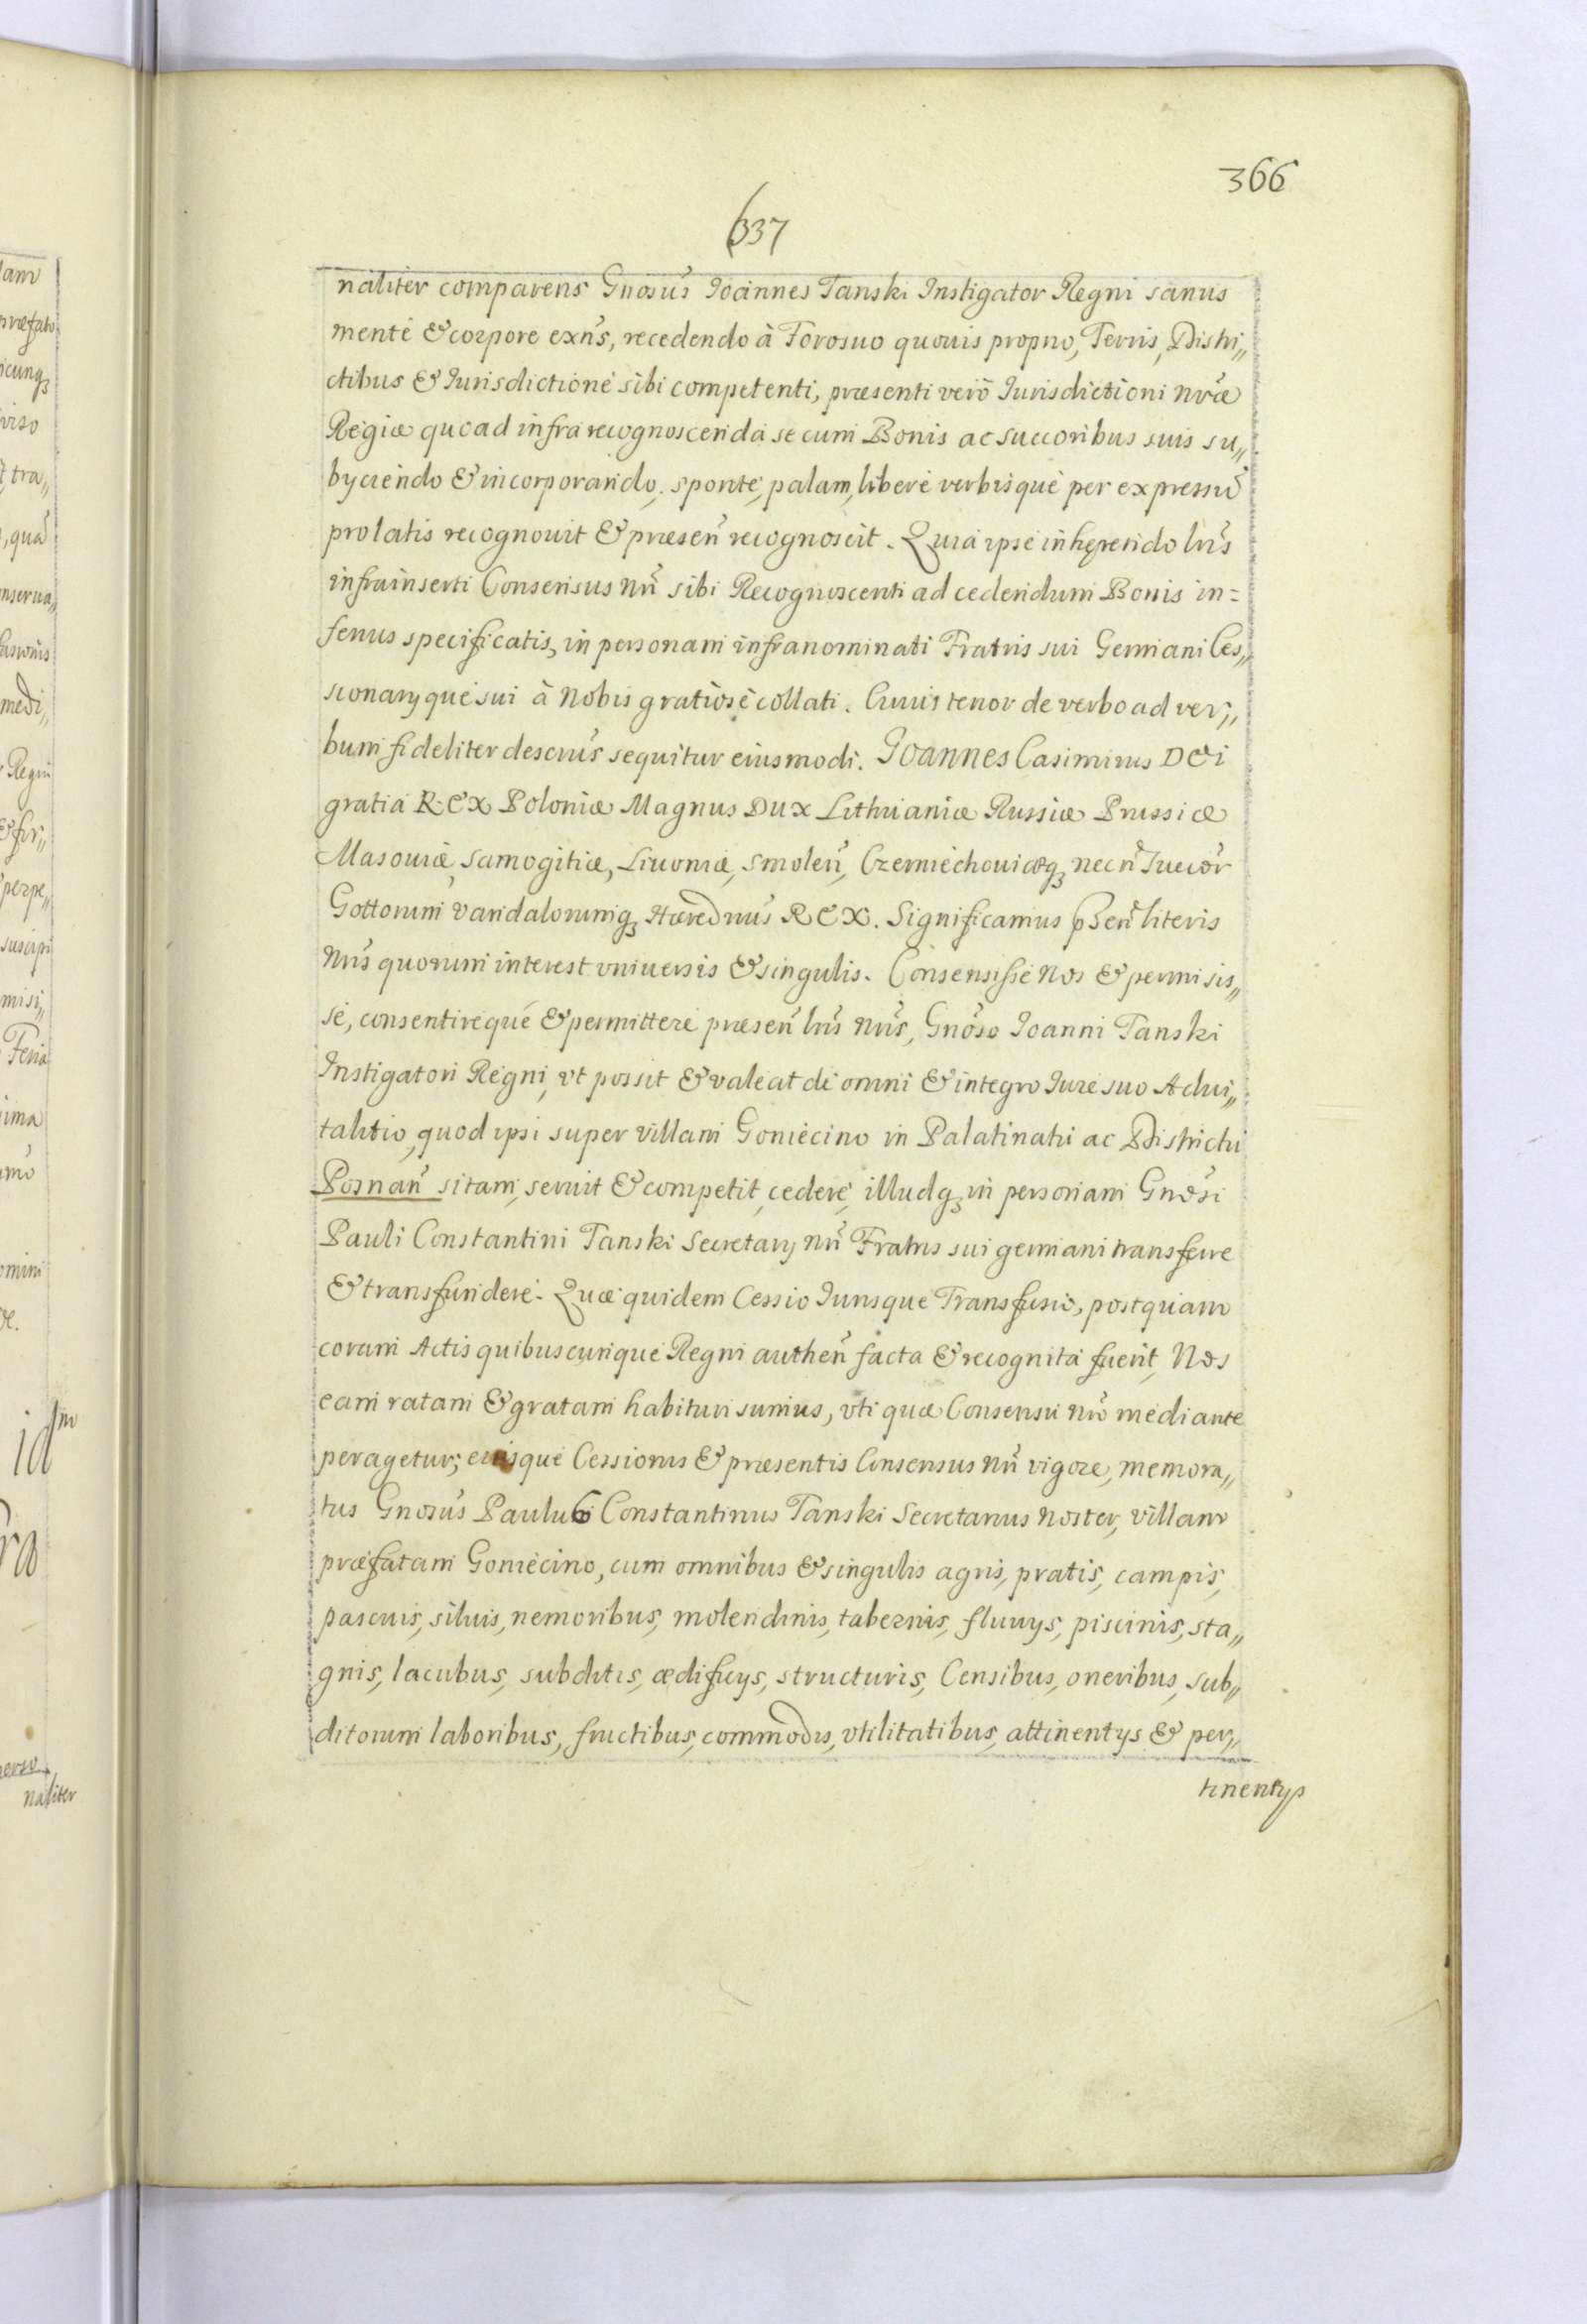 366
337
naliter comparens Gnosus Ioannes Tanski Instigator Regni sanus
mente & corpore exns, recedendo à Foro suo quouis proprio, Terris, Distri„
ctibus & Iurisdictione sibi competenti, præsenti verò Iurisdictioni nræ
Regiæ quoad infra recognoscenda se cum Bonis ac succoribus suis su„
byciendo & incorporando, sponte, palam, libere verbisque per expressũ
prolatis recognouit & præsen recognoscit. Quia ipse inhęrendo lris
infrainserti Consensus nri sibi Recognoscenti ad cedendum Bonis in=
ferius specificatis, in personam infranominati Fratris sui Germani Ces„
sionaryque sui à Nobis gratiosè collati. Cuius tenor de verbo ad ver„
bum fideliter descrus sequitur eiusmodi. Joannes Casimirus Dei
gratia Rex Poloniæ Magnus Dux Lithuaniæ Russiæ Prussiæ
Masouiæ, Samogitiæ, Liuoniæ, Smolen, Czerniechouiæq3 necn Suecor
Gottorum Vandalorumq3 Hæredrius Rex. Significamus pñten literis
nris quorum interest vniuersis & singulis. Consensisse Nos & permisis„
se, consentireque & permittere præsen lris nris, Gnoso Ioanni Tanski
Instigatori Regni, vt possit & valeat de omni & integro Iure suo Adui„
talitio, quod ipsi super villam Goniecino in Palatinatu ac Districtu
Posnan sitam, seruit & competit, cedere, illudq3 in personam Gnosi
Pauli Constantini Tanski Secretary nri Fratris sui germani transferre
& transfundere. Quæ quidem Cessio Iurisque Transfusio, postquam
coram Actis quibuscunque Regni authen facta & recognita fuerit, Nos
eam ratam & gratam habituri sumus, vti quæ Consensu nro mediante
peragetur; eiusque Cessionis & præsentis Consensus nri vigore, memora„
tus Gnosus Paulus Constantinus Tanski Secretarius Noster, villam
præfatam Goniecino, cum omnibus & singulis agris, pratis, campis,
pascuis, siluis, nemoribus, molendinis, tabernis, fluuys, piscinis, sta„
gnis, lacubus, subditis, ædificys, structuris, Censibus, oneribus, sub„
ditorum laboribus, fructibus, commodis, vtilitatibus, attinentys & per„
tinentys